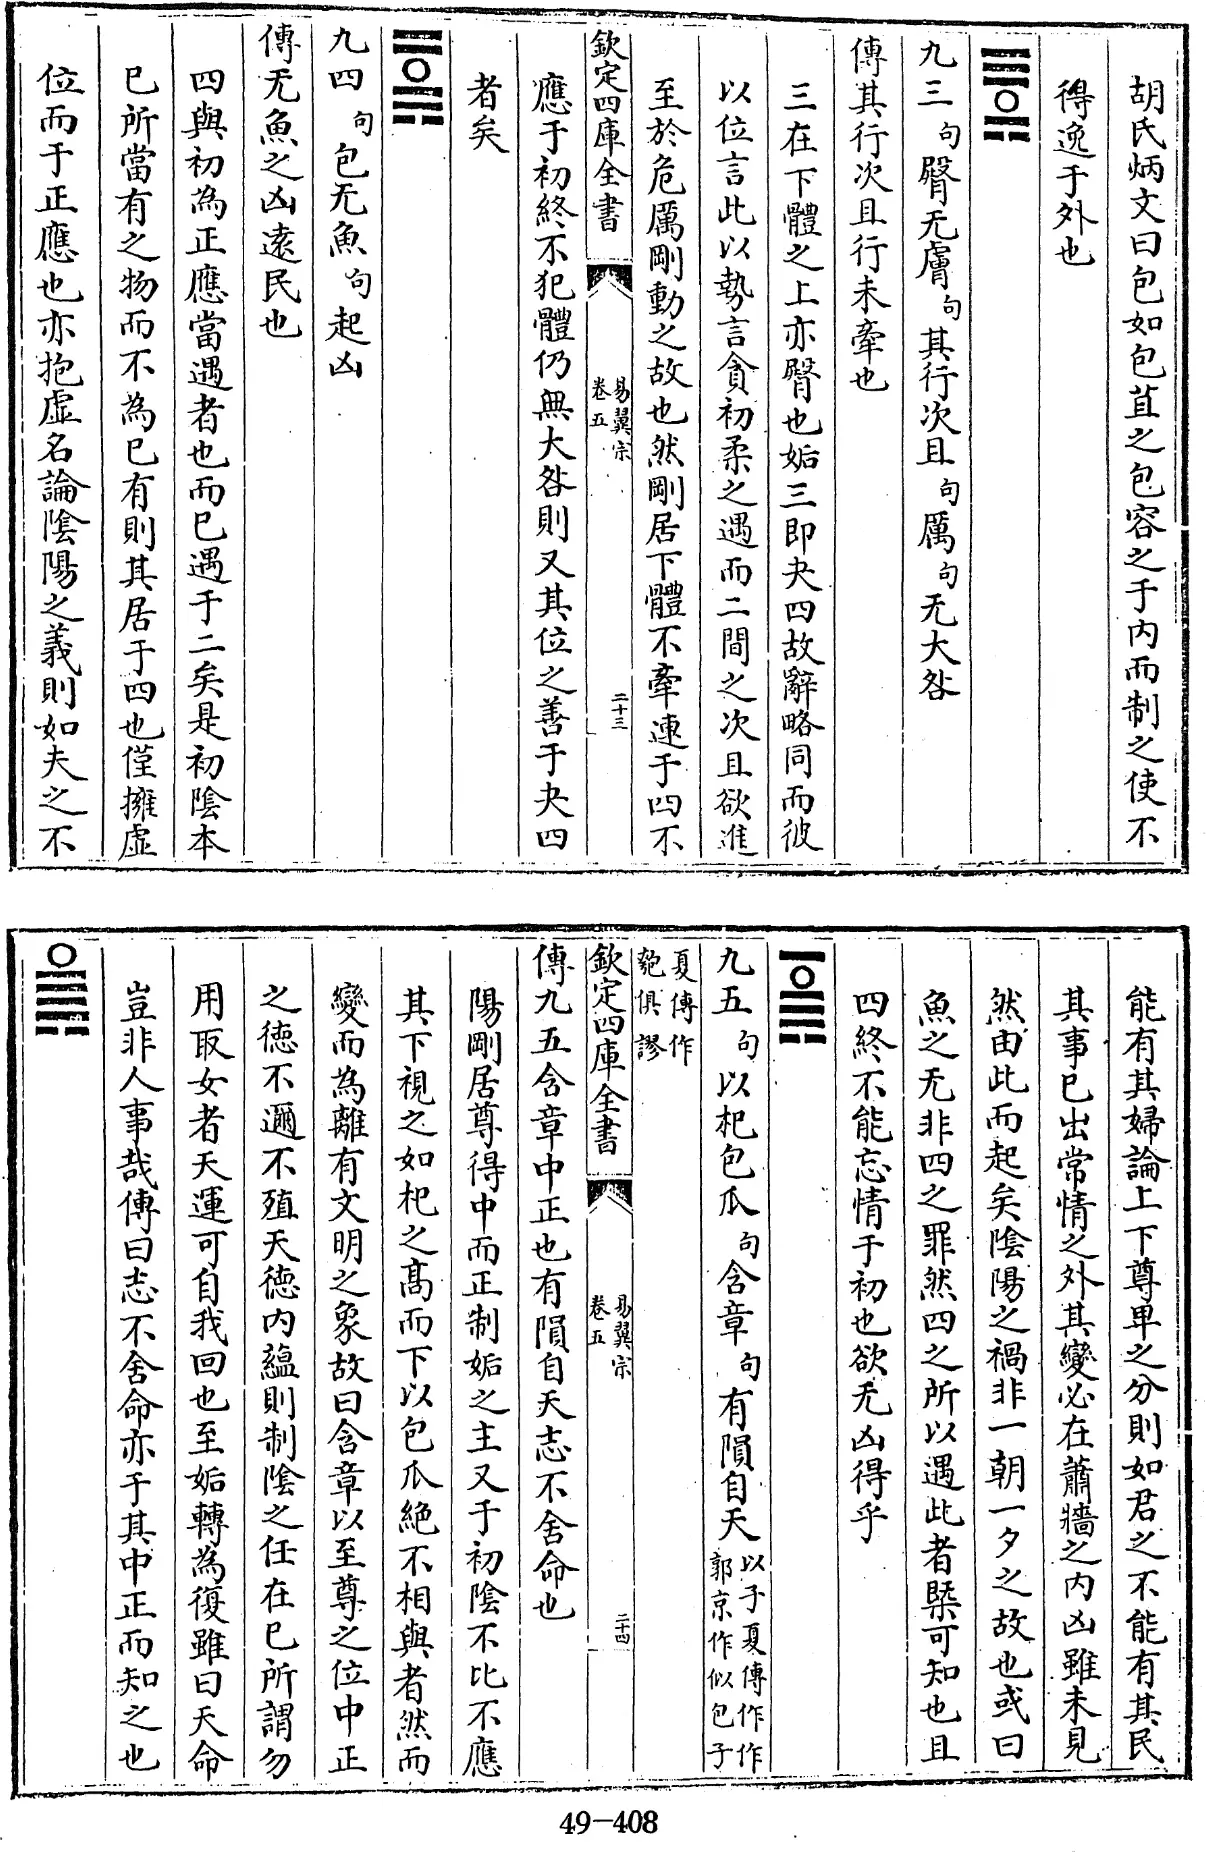 胡氏炳文曰包如包苴之包容之于内而制之使不
得逸于外也
九三句臀无膚句其行次且句厲句无大咎
傳其行次且行未牽也
三在下體之上亦臀也姤三即夬四故辭略同而彼
以位言此以勢言貪初柔之遇而二間之次且欲進
至於危厲剛動之故也然剛居下體不牽連于四不
欽定四庫全書
易翼宗
卷五
二十三
應于初終不犯體仍無大咎則又其位之善于夬四
者矣
九四句包无魚句起凶
傳无魚之凶逺民也
四與初為正應當遇者也而已遇于二矣是初陰本
已所當有之物而不為已有則其居于四也僅擁虛
位而于正應也亦抱虛名論陰陽之義則如夫之不
能有其婦論上下尊卑之分則如君之不能有其民
其事已出常情之外其變必在蕭牆之内凶雖未見
然由此而起矣陰陽之禍非一朝一夕之故也或曰
魚之无非四之罪然四之所以遇此者槩可知也且
四終不能忘情于初也欲无凶得乎
九五句以杞包瓜句含章句有隕自天
以子夏傳作作
郭京作似包子
夏傳作
匏俱謬
欽定四庫全書
易翼宗
卷五
二十四
傳九五含章中正也有隕自天志不舍命也
陽剛居尊得中而正制姤之主又于初陰不比不應
其下視之如杞之髙而下以包瓜絶不相與者然而
變而為離有文明之象故曰含章以至尊之位中正
之徳不邇不殖天徳内藴則制陰之任在已所謂勿
用取女者天運可自我回也至姤轉為復雖曰天命
豈非人事哉傳曰志不舍命亦于其中正而知之也
49-408